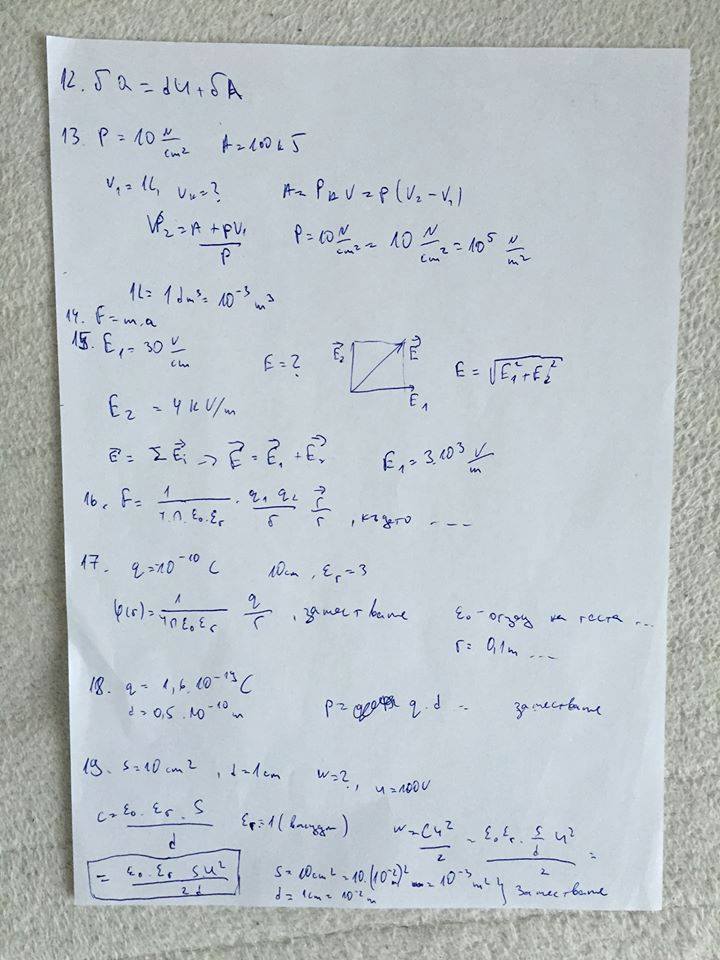 12. δQ = dU + δA
13. P = 10 N/cm² A = 100 k J
V₁ = 1L, Vk = ? A = P V = p(V₂ - V₁)
V₂ = A + pV₁ / P P = 10 N/cm² = 10 N/cm² = 10⁵ N/m²
1L = 1 dm³ = 10⁻³ m³
14. F = m.a
15. E₁ = 30 V/cm E = ? E⃗₂ E⃗ E₁ E = √(E₁² + E₂²)
E₂ = 4 kV/m
E⃗ = Σ E⃗i => E⃗ = E⃗₁ + E⃗₂ E₁ = 3.10³ V/m
16. F = 1 / 4.π.ε₀.εr . q₁ q₂ / r r⃗ / r , където ....
17. q = 10⁻¹⁰ C 10cm, εr = 3
φ(r) = 1 / 4πε₀εr q / r , заместваме ε₀ - отзад на теста ...
r = 0,1m ...
18. q = 1,6.10⁻¹⁹ C
d = 0,5.10⁻¹⁰ m p = q.d .. заместваме
19. S = 10cm², d = 1cm W = ?, U = 100V
C = ε₀.εr.S / d εr = 1 (въздух) W = CU² / 2 = ε₀εr . S/d U² / 2 =
= ε₀.εr SU² / 2d S = 10cm² = 10.(10⁻²)² = 10⁻³ m² } заместваме
d = 1cm = 10⁻² m